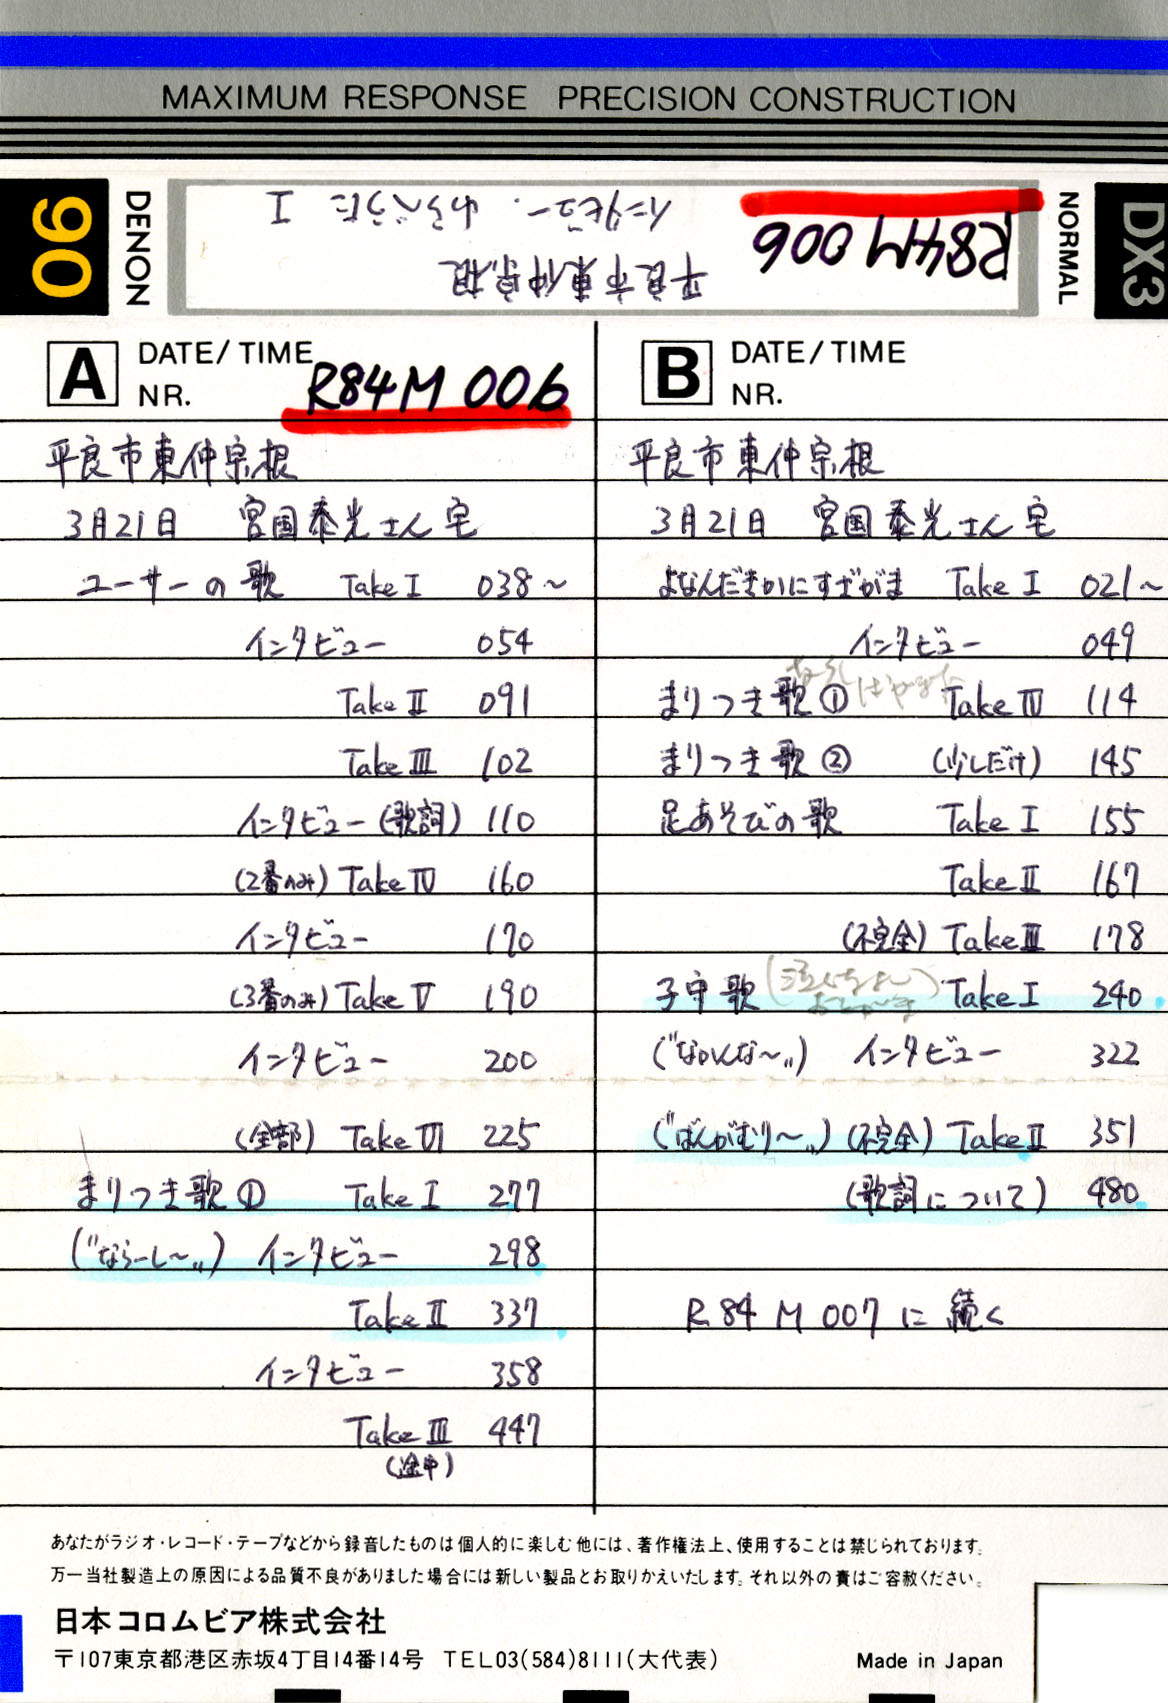 MAXIMUM RESPONSE PRECISION CONSTRUCTION
90
DENON
R84M 006
平良市東仲宗根
インタビュー・わらべうた I
NORMAL
DX3
A DATE/TIME
NR. R84M 006
平良市東仲宗根
3月21日 宮国泰光さん宅
ユーサーの歌 Take I 038~
インタビュー 054
Take II 091
Take III 102
インタビュー(歌詞) 110
(2番のみ) Take IV 160
インタビュー 170
(3番のみ) Take V 190
インタビュー 200
(全部) Take VI 225
まりつき歌① Take I 277
("ならーし~") インタビュー 298
Take II 337
インタビュー 358
Take III 447
(途中)
B DATE/TIME
NR.
平良市東仲宗根
3月21日 宮国泰光さん宅
よなんだきかにすざがま Take I 021~
インタビュー 049
まりつき歌① Take IV 114
まりつき歌② (少しだけ) 145
足あそびの歌 Take I 155
Take II 167
(不完全) Take III 178
子守歌 Take I 240
("なかんな~") インタビュー 322
("ばんがむり~") (不完全) Take II 351
(歌詞について) 480
R84M007に続く
あなたがラジオ・レコード・テープなどから録音したものは個人的に楽しむ他には、著作権法上、使用することは禁じられております。
万一当社製造上の原因による品質不良がありました場合には新しい製品とお取りかえいたします。それ以外の責はご容赦ください。
日本コロムビア株式会社
〒107東京都港区赤坂4丁目14番14号 TEL03(584)8111(大代表)
Made in Japan